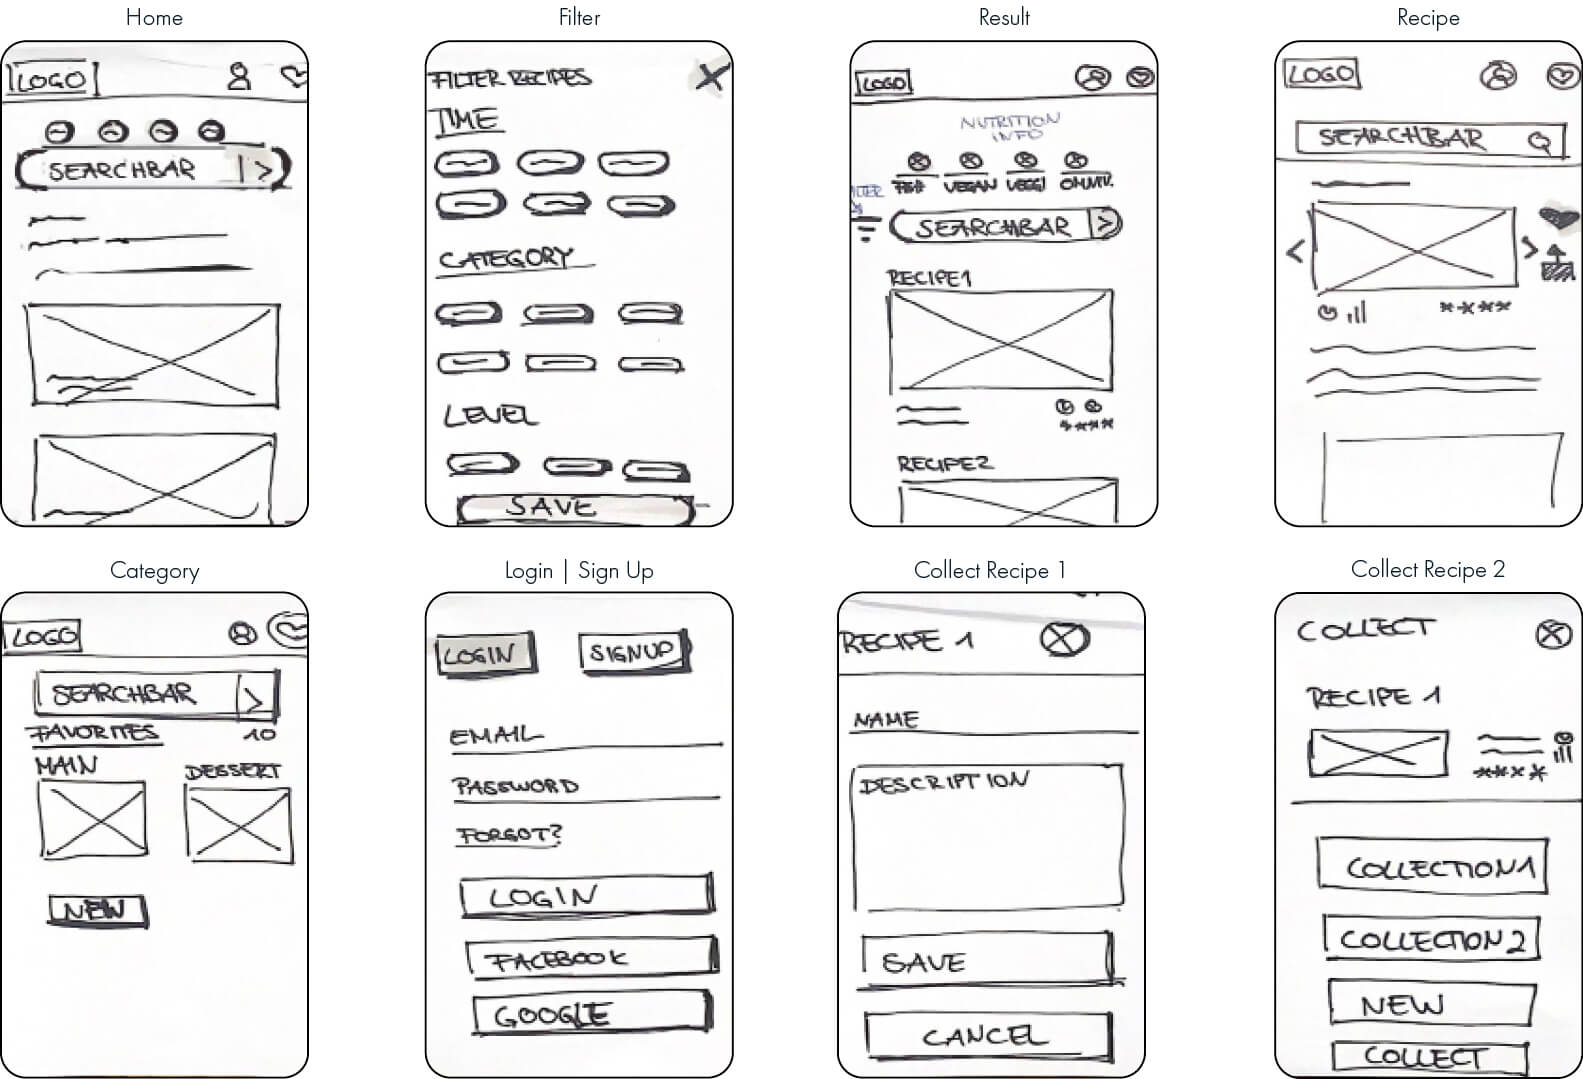 Home
LOGO
SEARCHBAR
Filter
FILTER RECIPES
TIME
CATEGORY
LEVEL
SAVE
Result
LOGO
NUTRITION
INFO
VEGAN VEGGI OMNIV.
SEARCHBAR
RECIPE1
RECIPE2
Recipe
LOGO
SEARCHBAR
Category
LOGO
SEARCHBAR
FAVORITES 10
MAIN DESSERT
NEW
Login | Sign Up
LOGIN SIGNUP
EMAIL
PASSWORD
FORGOT?
LOGIN
FACEBOOK
GOOGLE
Collect Recipe 1
RECIPE 1
NAME
DESCRIPTION
SAVE
CANCEL
Collect Recipe 2
COLLECT
RECIPE 1
COLLECTION1
COLLECTION2
NEW
COLLECT